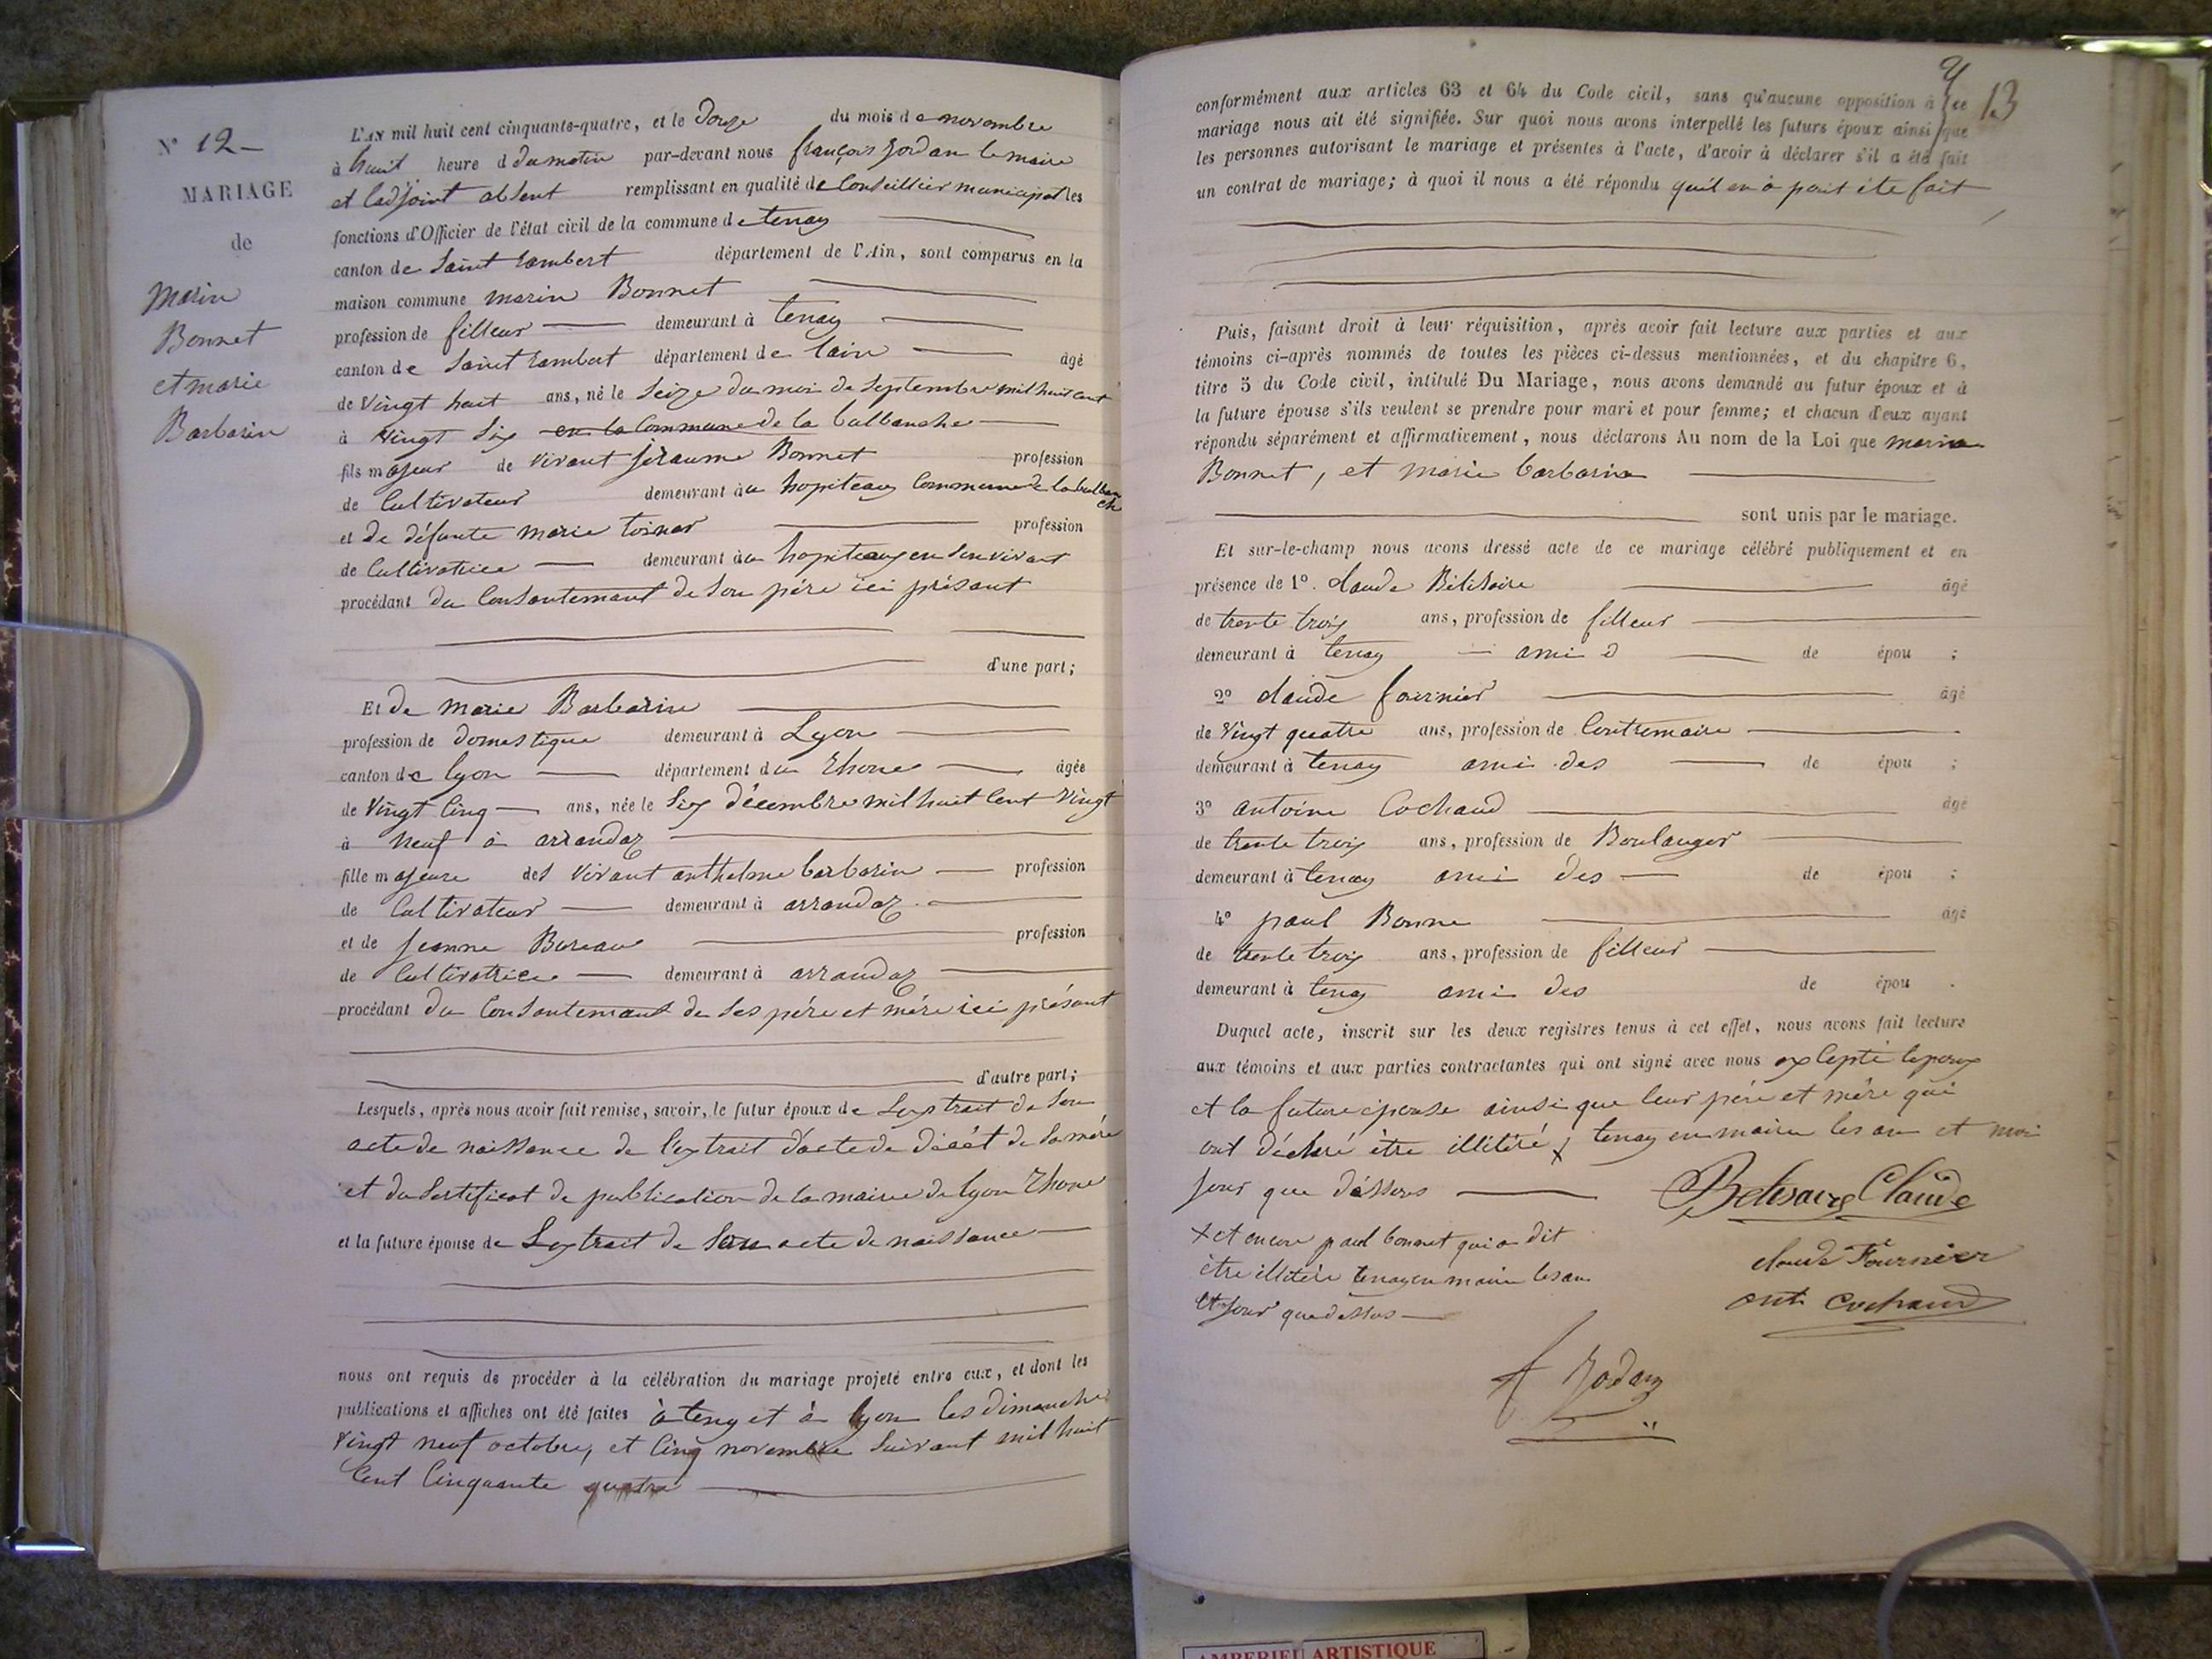 N° 12 —
MARIAGE
de
Marin
Bonnet
et marie
Barbarin
L'AN mil huit cent cinquante-quatre, et le Douze du mois de novembre
à huit heure d du matin par-devant nous françois Jordan le maire
et ladjoint absent remplissant en qualité de Conseillier municipal les
fonctions d'Officier de l'état civil de la commune de tenay
canton de Saint rambert département de l'Ain, sont comparus en la
maison commune marin Bonnet
profession de filleur demeurant à tenay
canton de Saint rambert département de lain âgé
de Vingt huit ans, né le Seize du moi de Septembre mil huit cent
à Vingt Six en la Commune de la balbanche
fils majeur de vivant Jéraume Bonnet profession
de Cultivateur demeurant à a hopiteaux Commune de la balban
che
et de défunte marie profession
de Cultivatrice demeurant à au hopiteaux en son vivant
procédant du Consantemant de Son père ici présant
d'une part;
Et de Marie Barbarin
profession de Domestique demeurant à Lyon
canton de lyon département du Rhone âgée
de Vingt Cinq ans, née le Six décembre mil huit Cent Vingt
à Neuf à arrandaz
fille majeure des Vivant anthelme barbarin profession
de Cultivateur demeurant à arrandaz
et de Jeanne Bureau profession
de Cultivatrice demeurant à arrandaz
procédant du Consantemant de Ses père et mère ici présant
d'autre part;
Lesquels, après nous avoir fait remise, savoir, le futur époux de Lextrait de Son
acte de naissance de lextrait dacte de décét de Sa mère
et du Sertificat de publication de la mairie de lyon Rhone
et la future épouse de Lextrait de Son acte de naissance
nous ont requis de procéder à la célébration du mariage projeté entre eux, et dont les
publications et affiches ont été faites à teny et à lyon les dimanche
Vingt neuf octobre, et Cinq novembre Suivant mil huit
Cent Cinquante quatre
13
conformément aux articles 63 et 64 du Code civil, sans qu'aucune opposition à ce
mariage nous ait été signifiée. Sur quoi nous avons interpellé les futurs époux ainsi que
les personnes autorisant le mariage et présentes à l'acte, d'avoir à déclarer s'il a été fait
un contrat de mariage; à quoi il nous a été répondu quil en a point été fait
Puis, faisant droit à leur réquisition, après avoir fait lecture aux parties et aux
témoins ci-après nommés de toutes les pièces ci-dessus mentionnées, et du chapitre 6,
titre 5 du Code civil, intitulé Du Mariage, nous avons demandé au futur époux et à
la future épouse s'ils veulent se prendre pour mari et pour femme; et chacun d'eux ayant
répondu séparément et affirmativement, nous déclarons Au nom de la Loi que marin
Bonnet, et marie barbarin
sont unis par le mariage.
Et sur-le-champ nous avons dressé acte de ce mariage célébré publiquement et en
présence de 1°. Claude Bélisaire âgé
de trente trois ans, profession de filleur
demeurant à tenay ami d de épou ;
2° claude fournier âgé
de Vingt quatre ans, profession de Contremaire
demeurant à tenay ami des de épou ;
3° antoine Cochaud âgé
de trente trois ans, profession de Boulanger
demeurant à tenay ami des de épou ;
4° paul Bonne âgé
de trente trois ans, profession de filleur
demeurant à tenay ami des de épou .
Duquel acte, inscrit sur les deux registres tenus à cet effet, nous avons fait lecture
aux témoins et aux parties contractantes qui ont signé avec nous exsepté lepoux
et la future épouse ainsi que leur père et mère qui
ont déclaré être illitéré x tenay en mairie les an et moi
Jour que déssus
Belisaire Claude
x et encore paul bonnet qui a dit
être illitéré tenay en mairie les an
et Jour que dessus
claude Fournier
ant cochaud
f Jordan
AMBERIEU ARTISTIQUE